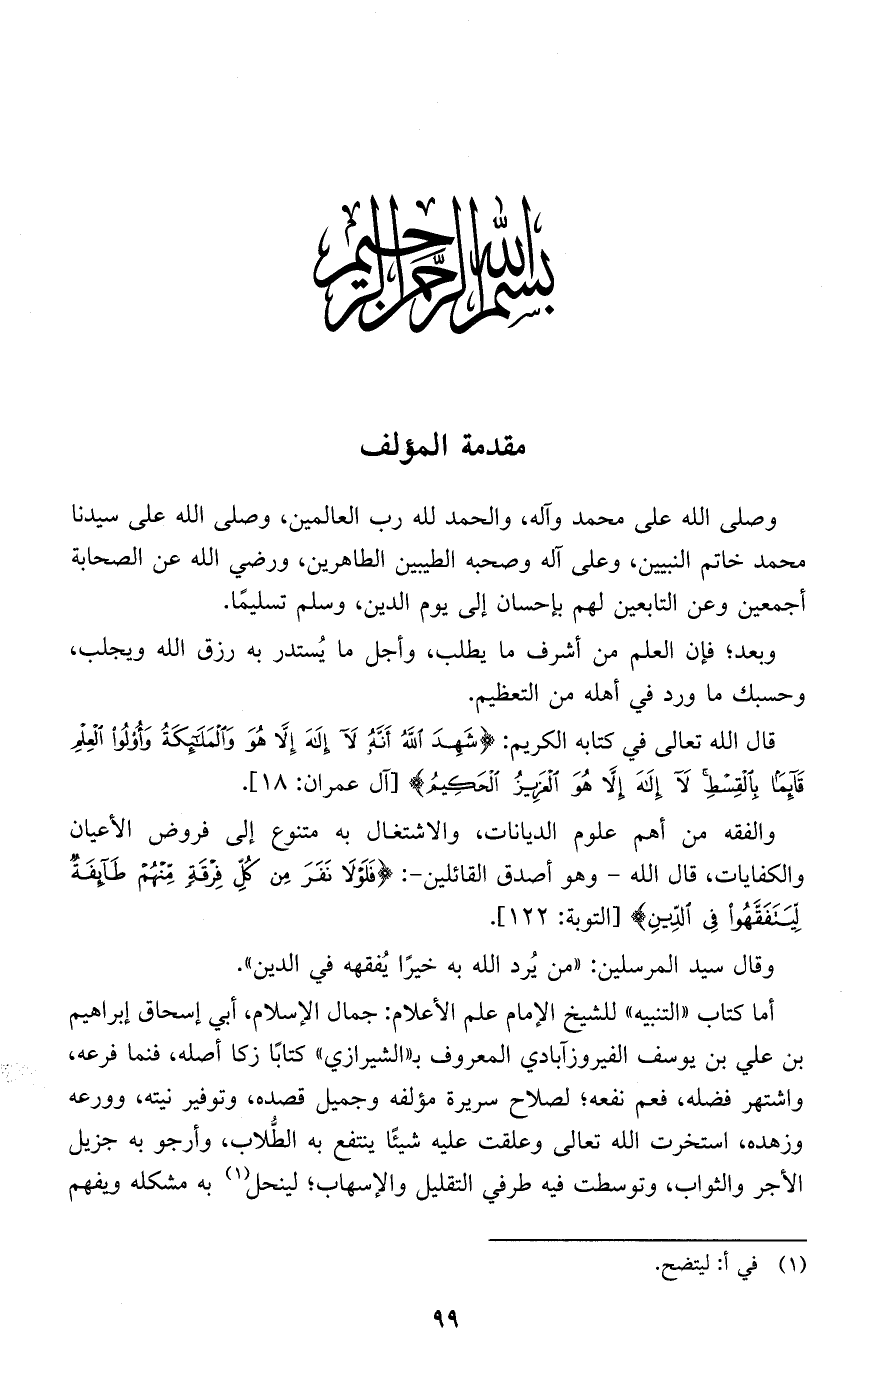 بسم الله الرحمن الرحيم
مقدمة المؤلف
وصلى الله على محمد وآله، والحمد لله رب العالمين، وصلى الله على سيدنا
محمد خاتم النبيين، وعلى آله وصحبه الطيبين الطاهرين، ورضي الله عن الصحابة
أجمعين وعن التابعين لهم بإحسان إلى يوم الدين، وسلم تسليمًا.
وبعد؛ فإن العلم من أشرف ما يطلب، وأجل ما يُستدر به رزق الله ويجلب،
وحسبك ما ورد في أهله من التعظيم.
قال الله تعالى في كتابه الكريم: ﴿شَهِدَ ٱللَّهُ أَنَّهُۥ لَآ إِلَٰهَ إِلَّا هُوَ وَٱلْمَلَٰٓئِكَةُ وَأُو۟لُوا۟ ٱلْعِلْمِ
قَآئِمًۢا بِٱلْقِسْطِۚ لَآ إِلَٰهَ إِلَّا هُوَ ٱلْعَزِيزُ ٱلْحَكِيمُ﴾ [آل عمران: ١٨].
والفقه من أهم علوم الديانات، والاشتغال به متنوع إلى فروض الأعيان
والكفايات، قال الله - وهو أصدق القائلين-: ﴿فَلَوْلَا نَفَرَ مِن كُلِّ فِرْقَةٍ مِّنْهُمْ طَآئِفَةٌ
لِّيَتَفَقَّهُوا۟ فِى ٱلدِّينِ﴾ [التوبة: ١٢٢].
وقال سيد المرسلين: «من يُرد الله به خيرًا يُفقهه في الدين».
أما كتاب «التنبيه» للشيخ الإمام علم الأعلام: جمال الإسلام، أبي إسحاق إبراهيم
بن علي بن يوسف الفيروزآبادي المعروف بـ«الشيرازي» كتابًا زكا أصله، فنما فرعه،
واشتهر فضله، فعم نفعه؛ لصلاح سريرة مؤلفه وجميل قصده، وتوفير نيته، وورعه
وزهده، استخرت الله تعالى وعلقت عليه شيئًا ينتفع به الطُّلاب، وأرجو به جزيل
الأجر والثواب، وتوسطت فيه طرفي التقليل والإسهاب؛ لينحل(١) به مشكله ويفهم
(١) في أ: ليتضح.
٩٩